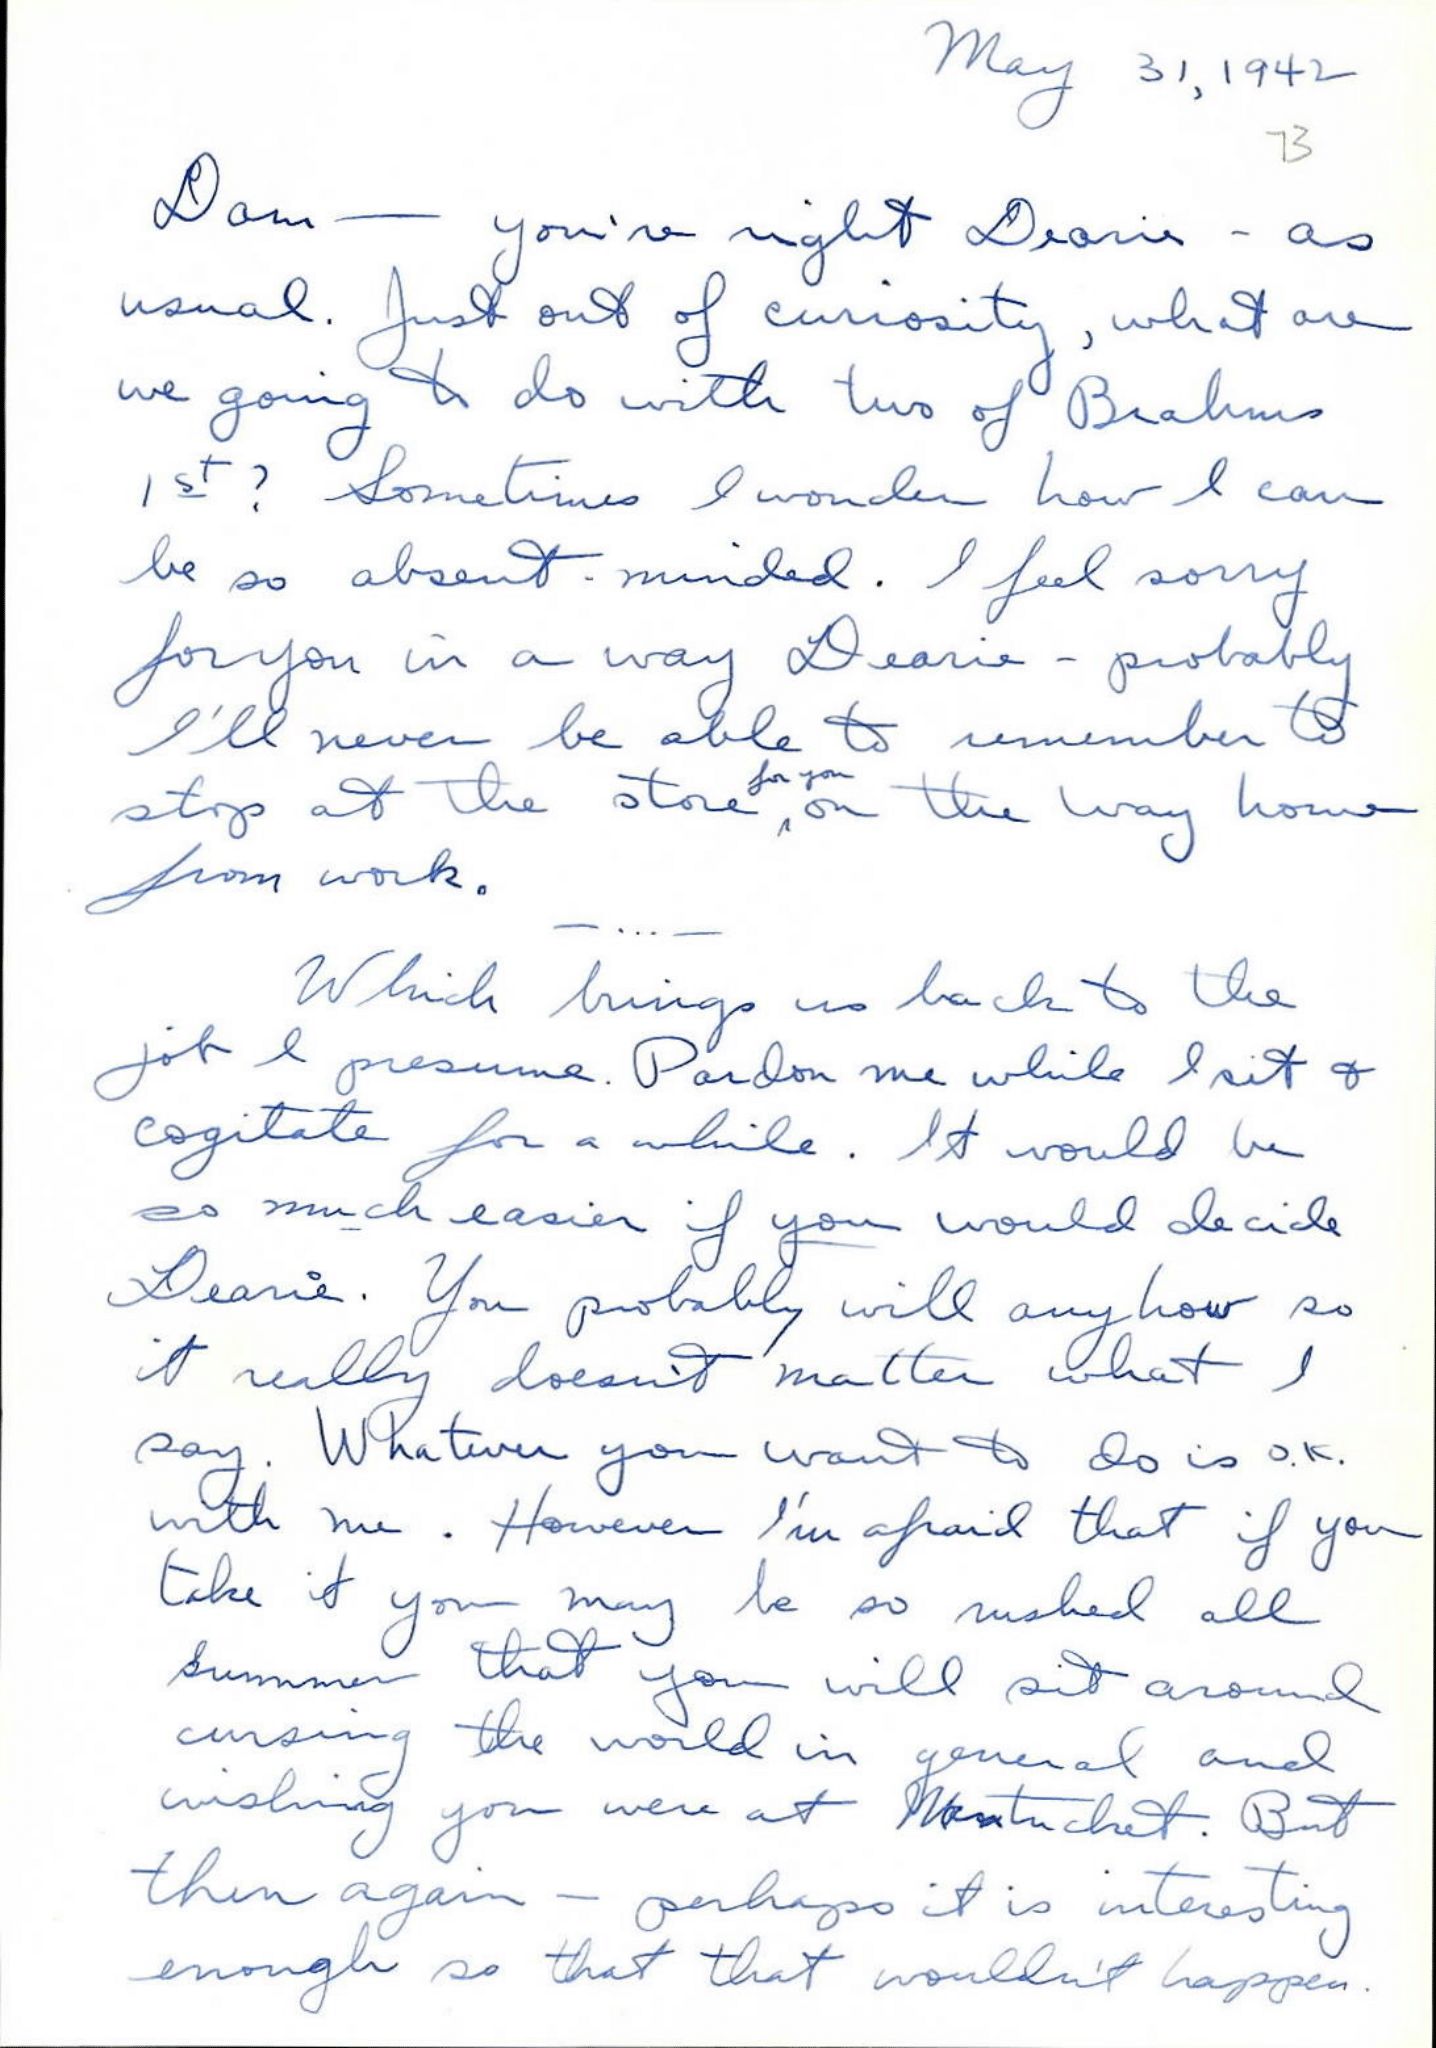 May 31, 1942
73
Dam — you're right Dearie - as
usual. Just out of curiosity, what are
we going to do with two of Brahms
1st? Sometimes I wonder how I can
be so absent-minded. I feel sorry
for you in a way Dearie - probably
I'll never be able to remember to
stop at the store for you on the way home
from work.
— ... —
Which brings us back to the
job I presume. Pardon me while I sit &
cogitate for a while. It would be
so much easier if you would decide
Dearie. You probably will anyhow so
it really doesn't matter what I
say. Whatever you want to do is O.K.
with me. However I'm afraid that if you
take it you may be so rushed all
summer that you will sit around
cursing the world in general and
wishing you were at Nantucket. But
then again — perhaps it is interesting
enough so that that wouldn't happen.